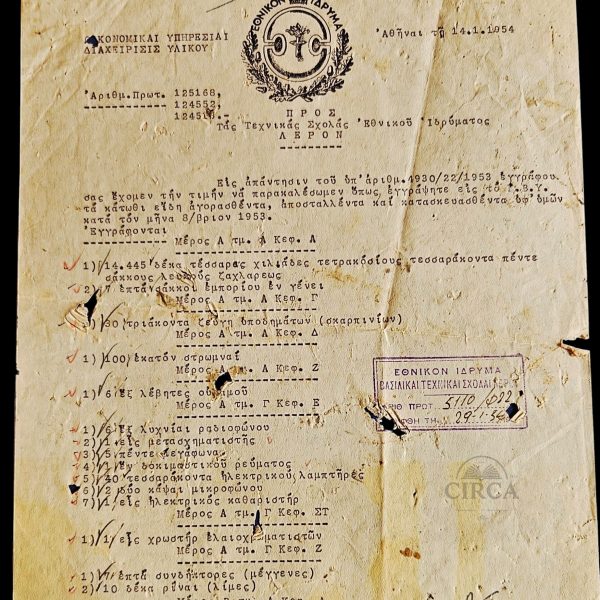 ΟΙΚΟΝΟΜΙΚΑΙ ΥΠΗΡΕΣΙΑΙ
ΔΙΑΧΕΙΡΙΣΙΣ ΥΛΙΚΟΥ
ΕΘΝΙΚΟΝ ΙΔΡΥΜΑ
Ἀθῆναι τῇ 14.1.1954
Ἀριθμ.Πρωτ. 125168,
124552,
Π Ρ Ο Σ
Τάς Τεχνικάς Σχολάς Ἐθνικοῦ Ἱδρύματος
Λ Ε Ρ Ο Ν
Εἰς ἀπάντησιν τοῦ ὑπ'ἀριθμ.4930/22/1953 ἐγγράφου
σας ἔχομεν τήν τιμήν νά παρακαλέσωμεν ὅπως ἐγγράψητε εἰς τό Υ.
τά κάτωθι εἴδη ἀγορασθέντα, ἀποσταλέντα καί κατασκευασθέντα ὑφ'ὑμῶν
κατά τόν μῆνα 8/βριον 1953.
Ἐγγράφονται
Μέρος Α τμ. Α Κεφ. Α
1) 14.445 δέκα τέσσαρας χιλιάδες τετρακόσιους τεσσαράκοντα πέντε
σάκκους λευκούς ζαχλαρεως
2) 7 ἑπτά σάκκοι ἐμπορίου ἐν γένει
Μέρος Α τμ. Α Κεφ. Γ
30 τριάκοντα ζεύγη ὑποδημάτων (σκαρπινίων)
Μέρος Α τμ. Α Κεφ. Δ
1) 100 ἑκατόν στρωμναί
Μέρος Α τμ. Α Κεφ. Ζ
1) 6 ἕξ λέβητες
Μέρος Α τμ. Γ Κεφ. Ε
1) 6 ἕξ λυχνίαι ραδιοφώνου
2) 1 εἷς μετασχηματιστής
3) 5 πέντε μεγάφωνα
4) 1 ἕν δοκιμαστικό ρεύματος
5) 40 τεσσαράκοντα ἠλεκτρικοί λαμπτῆρες
6) 2 δύο κάψαι μικροφώνου
7) 1 εἷς ἠλεκτρικός καθαριστήρ
Μέρος Α τμ. Γ Κεφ. ΣΤ
1) 1 εἷς χρωστήρ ἐλαιοχρωματιστῶν
Μέρος Α τμ. Γ Κεφ. Ζ
1) 7 ἑπτά συνδήκτορες (μέγγενες)
2) 10 δέκα ρῖναι (λίμες)
ΕΘΝΙΚΟΝ ΙΔΡΥΜΑ
ΒΑΣΙΛΙΚΑΙ ΤΕΧΝΙΚΑΙ ΣΧΟΛΑΙ
ΠΡΩΤ. 5110
29-1-54
CIRCA